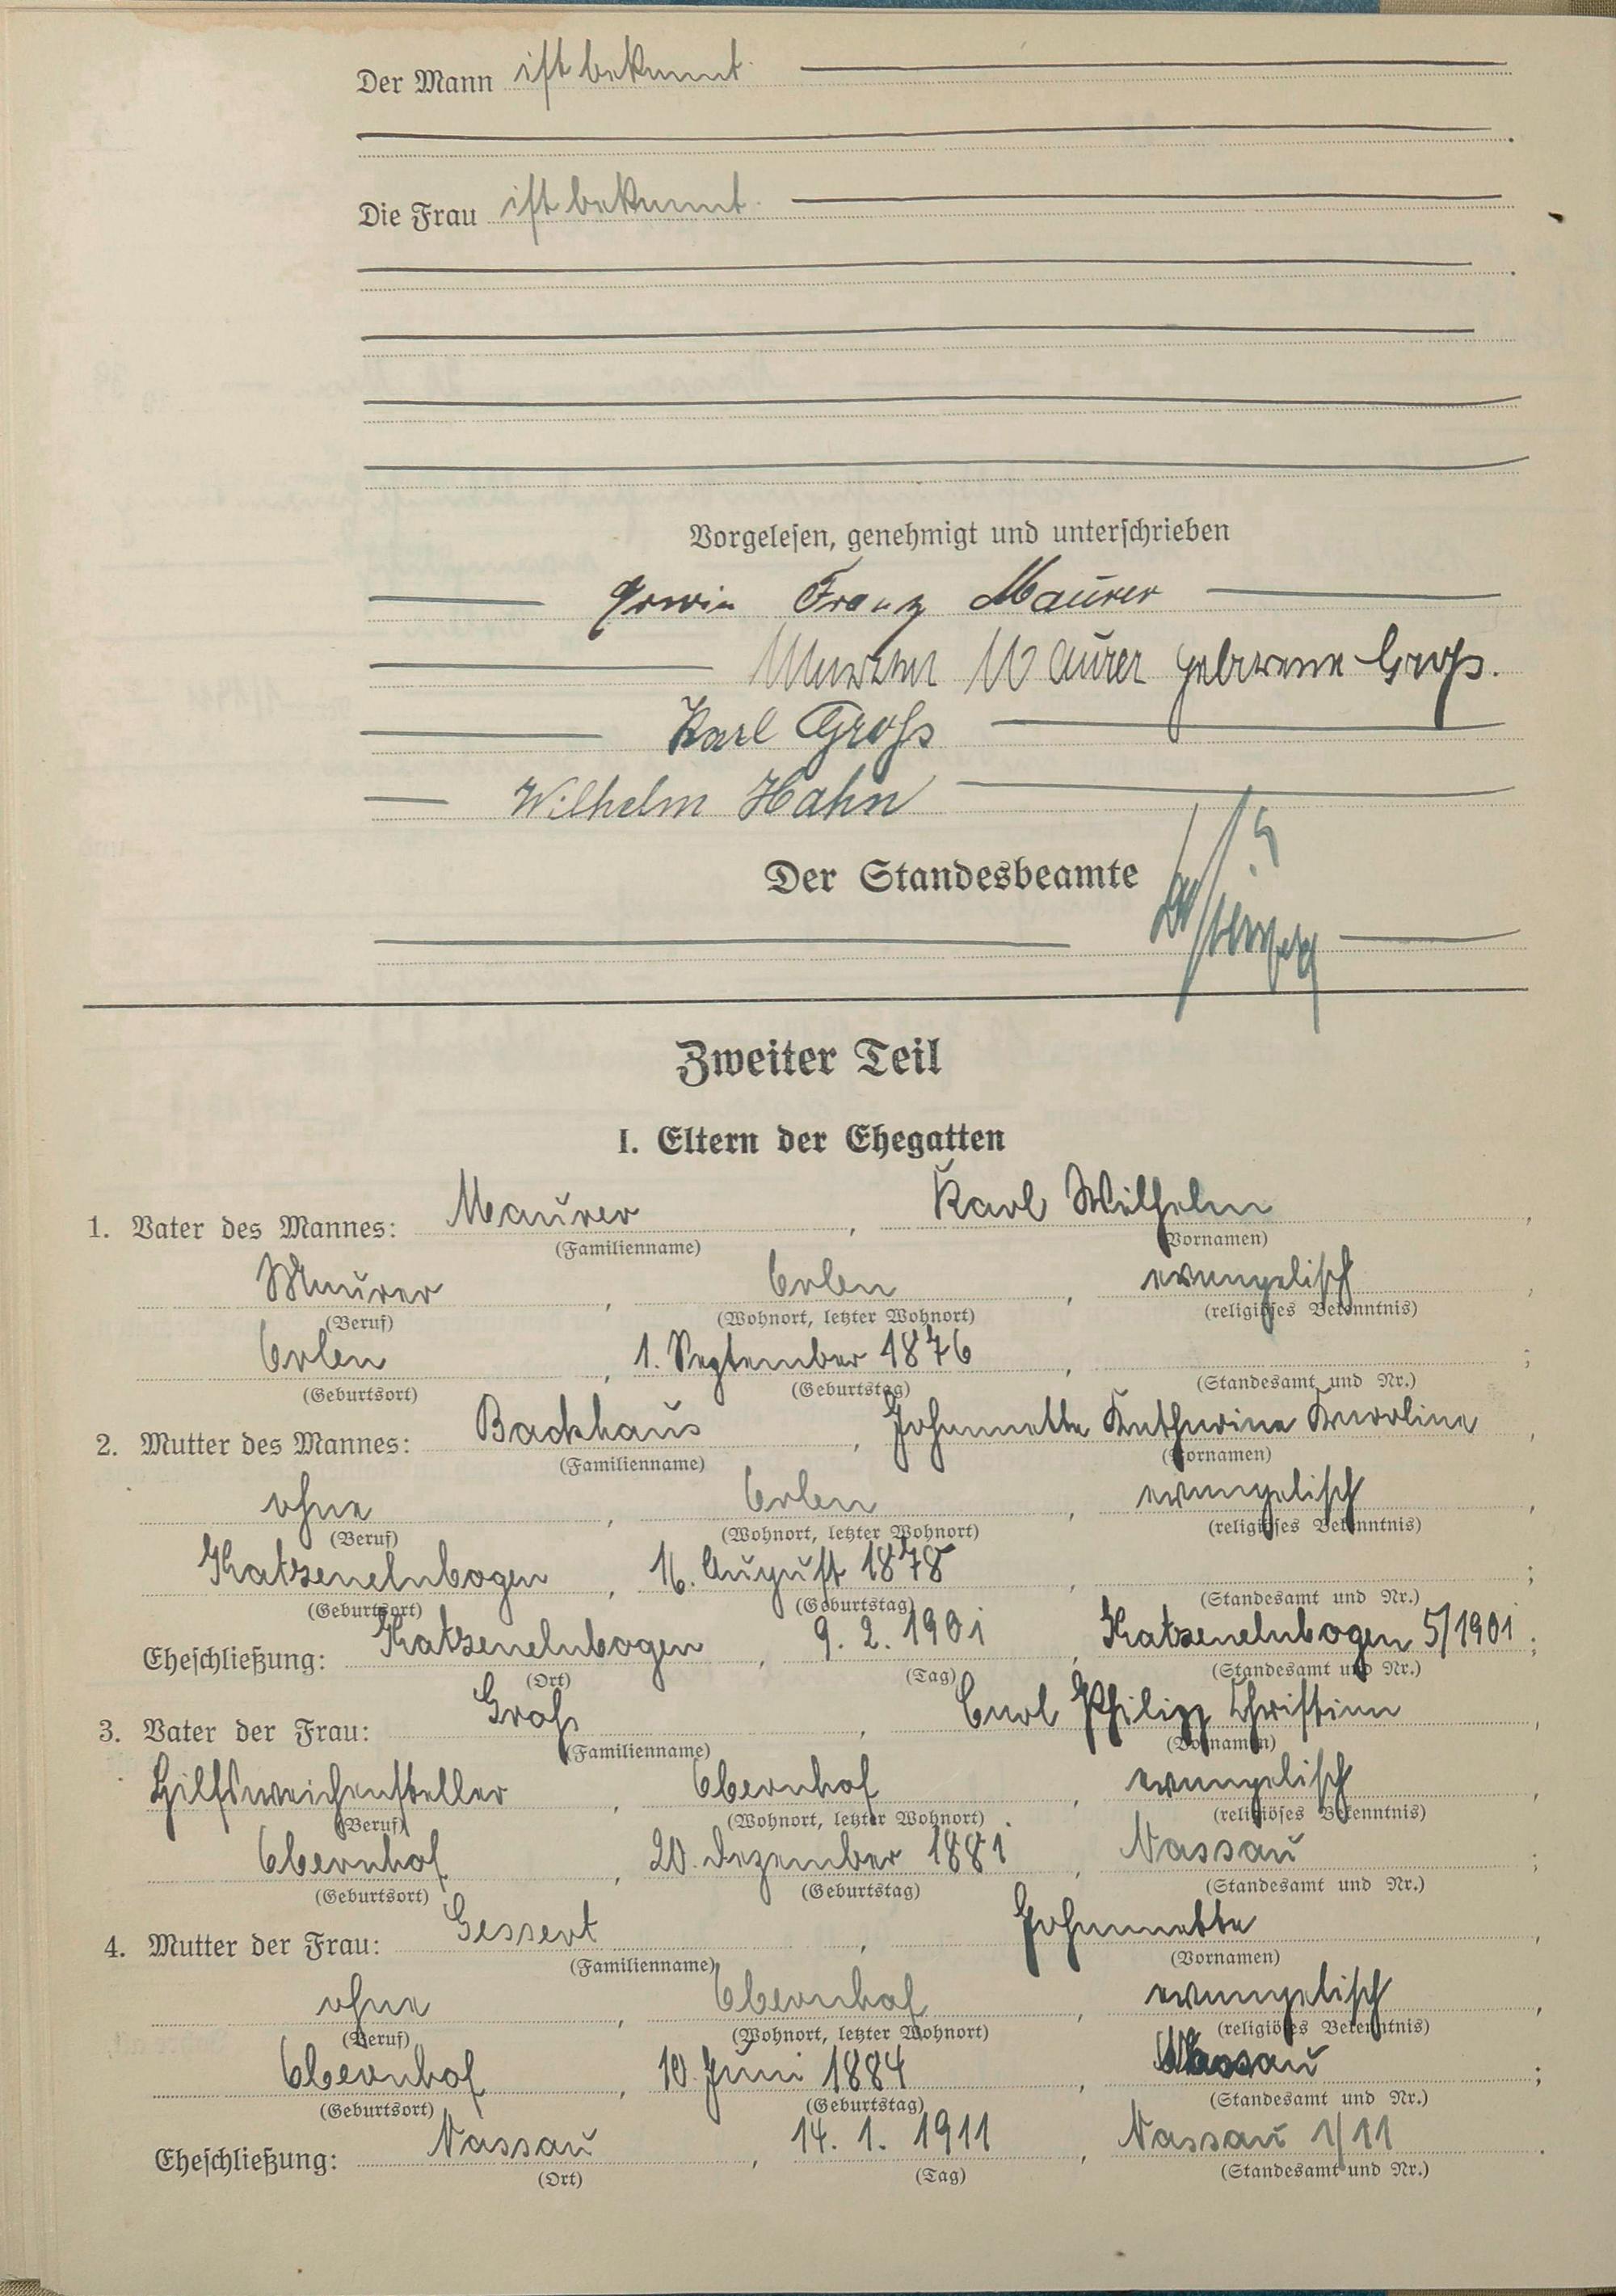 Der Mann ist bekannt.
Die Frau ist bekannt.
Vorgelesen, genehmigt und unterschrieben
Erwin Franz Maurer
Maurer geborene Groß.
Karl Groß
Wilhelm Hahn
Der Standesbeamte
Zweiter Teil
I. Eltern der Ehegatten
1. Vater des Mannes: Maurer, Karl Wilhelm,
(Familienname) (Vornamen)
Maurer, Erlen, evangelisch,
(Beruf) (Wohnort, letzter Wohnort) (religiöses Bekenntnis)
Erlen, 1. September 1876, ;
(Geburtsort) (Geburtstag) (Standesamt und Nr.)
2. Mutter des Mannes: Backhaus, Johannette Katharine Karoline,
(Familienname) (Vornamen)
ohne, Erlen, evangelisch,
(Beruf) (Wohnort, letzter Wohnort) (religiöses Bekenntnis)
Katzenelnbogen, 16. August 1878, ;
(Geburtsort) (Geburtstag) (Standesamt und Nr.)
Eheschließung: Katzenelnbogen, 9. 2. 1901, Katzenelnbogen 5/1901;
(Ort) (Tag) (Standesamt und Nr.)
3. Vater der Frau: Groß, Carl Philipp Christian,
(Familienname) (Vornamen)
Hilfsweichensteller, Obernhof, evangelisch,
(Beruf) (Wohnort, letzter Wohnort) (religiöses Bekenntnis)
Obernhof, 20. Dezember 1881, Nassau;
(Geburtsort) (Geburtstag) (Standesamt und Nr.)
4. Mutter der Frau: Gessert, Johannette,
(Familienname) (Vornamen)
ohne, Obernhof, evangelisch,
(Beruf) (Wohnort, letzter Wohnort) (religiöses Bekenntnis)
Obernhof, 10. Juni 1884, Nassau;
(Geburtsort) (Geburtstag) (Standesamt und Nr.)
Eheschließung: Nassau, 14. 1. 1911, Nassau 1/11.
(Ort) (Tag) (Standesamt und Nr.)